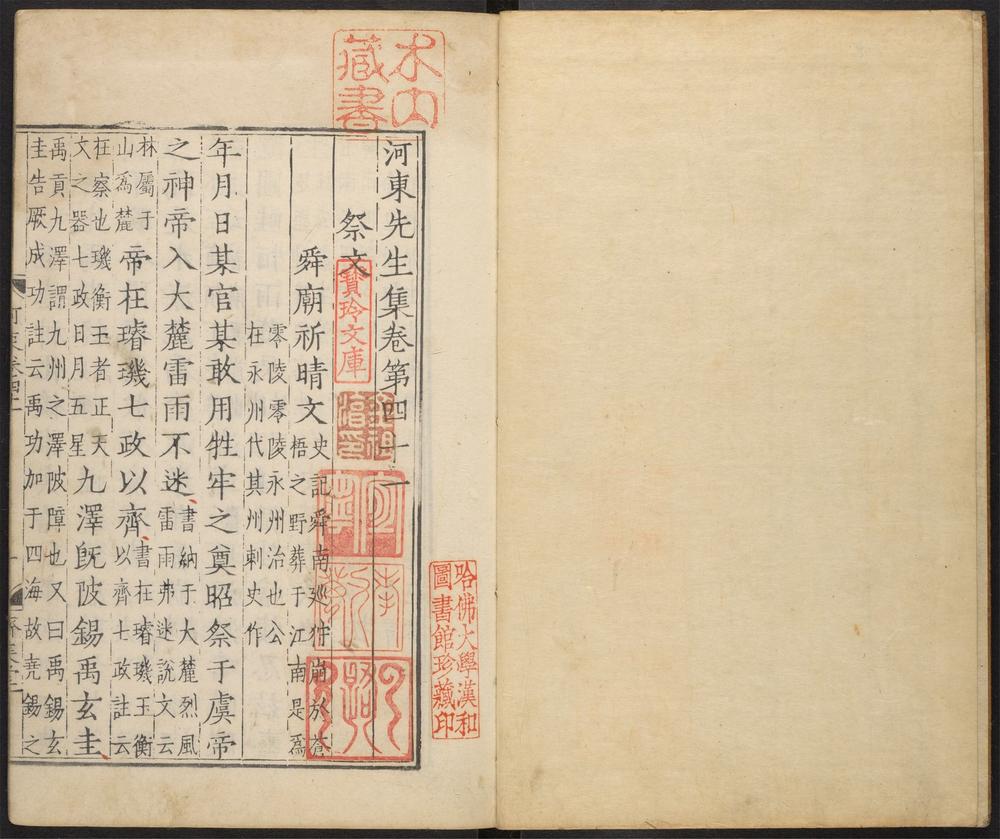 河東先生集卷第四十一
祭文
舜廟祈晴文
史記舜南廵狩崩於蒼
梧之野葬于江南是爲
零陵零陵永州治也公
在永州代其州刺史作
年月日某官某敢用牲牢之奠昭祭于虞帝
之神帝入大麓雷雨不迷
書納于大麓烈風
雷雨弗迷說文云
林屬于
山爲麓
帝在璿璣七政以齊
書在璿璣玉衡
以齊七政註云
在察也璣衡玉者正天
文之器七政日月五星
九澤旣陂錫禹玄圭
禹貢九澤謂九州之澤陂障也又曰禹錫玄
圭告厥成功註云禹功加于四海故堯錫之
木
藏書
寶玲文庫
哈佛大學漢和
圖書館珍藏印